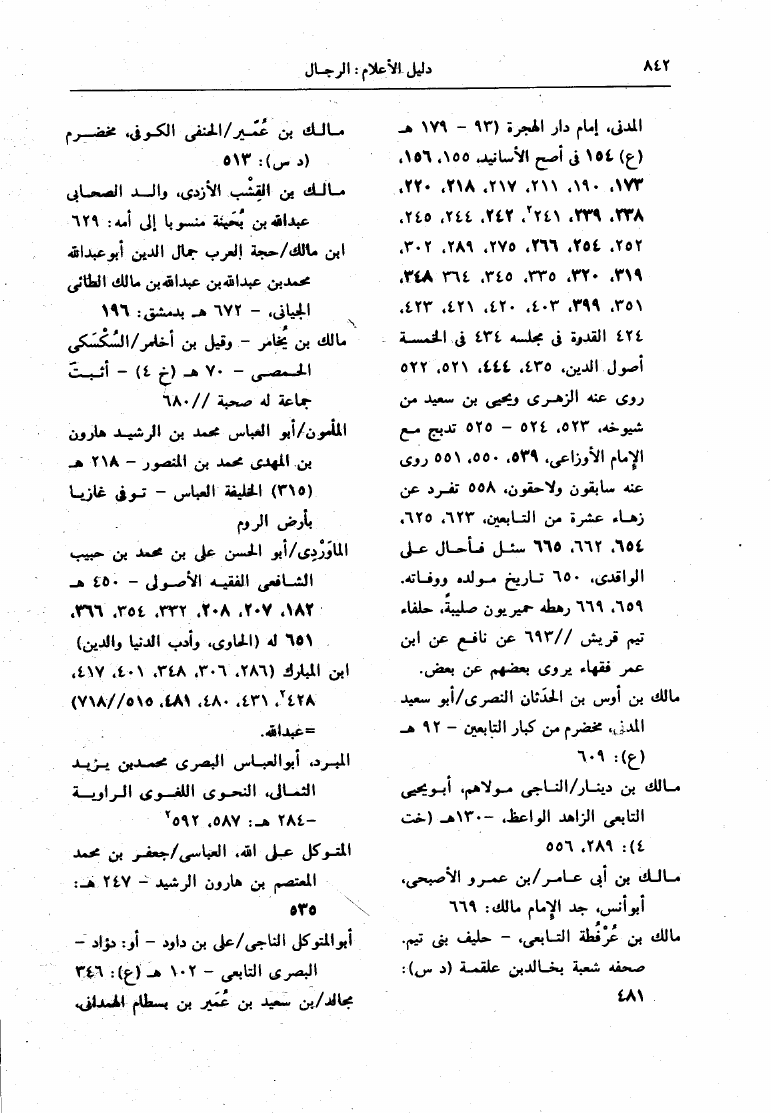 ٨٤٢
دليل الأعلام: الرجال
المدنى، إمام دار الهجرة (٩٣ - ١٧٩ هـ
(ع) ١٥٤ فى أصح الأسانيد، ١٥٥، ١٥٦،
١٧٣، ١٩٠، ٢١١، ٢١٧، ٢١٨، ٢٢٠،
٢٣٨، ٢٣٩، ٢٤١٢، ٢٤٢، ٢٤٤، ٢٤٥،
٢٥٢، ٢٥٤، ٢٦٦، ٢٧٥، ٢٨٩، ٣٠٢،
٣١٩، ٣٢٠، ٣٣٥، ٣٤٥، ٣٦٤ ٣٤٨،
٣٥١، ٣٩٩، ٤٠٣، ٤٢٠، ٤٢١، ٤٢٣،
٤٢٤ القدوة فى مجلسه ٤٣٤ فى الخمسة
أصول الدين، ٤٣٥، ٤٤٤، ٥٢١، ٥٢٢
روى عنه الزهرى ويحيى بن سعيد من
شيوخه، ٥٢٣، ٥٢٤ - ٥٢٥ تدبج مع
الإمام الأوزاعى، ٥٣٩، ٥٥٠، ٥٥١ روى
عنه سابقون ولاحقون، ٥٥٨ تفرد عن
زهاء عشرة من التابعين، ٦٢٣، ٦٢٥،
٦٥٤، ٦٦٢، ٦٦٥ سئل فأحال على
الواقدى، ٦٥٠ تاريخ مولده ووفاته.
٦٥٩، ٦٦٩ رهطه حميريون صليبة، حلفاء
تيم قريش //٦٩٣ عن نافع عن ابن
عمر فقهاء يروى بعضهم عن بعض.
مالك بن أوس بن الحدثان النصرى/أبو سعيد
المدنى، مخضرم من كبار التابعين - ٩٢ هـ
(ع): ٦٠٩
مالك بن دينار/الناجى مولاهم، أبويحيى
التابعى الزاهد الواعظ، -١٣٠هـ (خت
٤): ٢٨٩، ٥٥٦
مالك بن أبى عامر/بن عمرو الأصبحى،
أبوأنس، جد الإمام مالك: ٦٦٩
مالك بن عُرْفُطة التابعى، - حليف بنى تيم.
صحفه شعبة بخالدبن علقمة (د س):
٤٨١
مالك بن عُمَير/الحنفى الكوفى، مخضرم
(د س): ٥١٣
مالك بن القِشْب الأزدى، والد الصحابى
عبدالله بن بُحَينة منسوبا إلى أمه: ٦٢٩
ابن مالك/حجة العرب جمال الدين أبوعبدالله
محمدبن عبدالله بن عبدالله بن مالك الطائى
الجيانى، - ٦٧٢ هـ بدمشق: ١٩٦
مالك بن يُخامر - وقيل بن أخامر/السَّكْسَكى
الحمصى - ٧٠ هـ (خ ٤) - أثبت
جماعة له صحبة //٦٨٠
المأمون/أبو العباس محمد بن الرشيد هارون
بن المهدى محمد بن المنصور - ٢١٨ هـ
(٣١٥) الخليفة العباس - توفى غازيا
بأرض الروم
الماوَرْدِى/أبو الحسن على بن محمد بن حبيب
الشافعى الفقيه الأصولى - ٤٥٠ هـ
١٨٢، ٢٠٧، ٢٠٨، ٣٣٢، ٣٥٤، ٣٦٦،
٦٥١ له (الحاوى، وأدب الدنيا والدين)
ابن المبارك (٢٨٦، ٣٠٦، ٣٤٨، ٤٠١، ٤١٧،
٤٢٨٢، ٤٣١، ٤٨٠، ٤٨١، ٥١٥//٧١٨)
=عبدالله.
المبرد، أبوالعباس البصرى محمدبن يزيد
الثمالى، النحوى اللغوى الراوية
-٢٨٤ هـ: ٥٨٧، ٥٩٢٢
المتوكل على الله، العباسى/جعفر بن محمد
المعتصم بن هارون الرشيد - ٢٤٧ هـ:
٥٣٥
أبوالمتوكل الناجى/على بن داود - أو: دؤاد -
البصرى التابعى - ١٠٢ هـ (ع): ٣٤٦
مجالد/بن سعيد بن عُمَير بن بسطام الهمدانى،